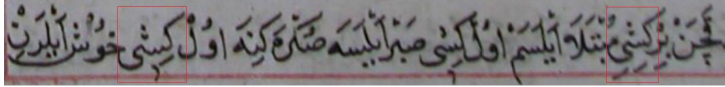 قچن بر كشيی مبتلا ایلسم اول كشی صبر ایلیسه صكره كنه اول كشی خوش ایلرن